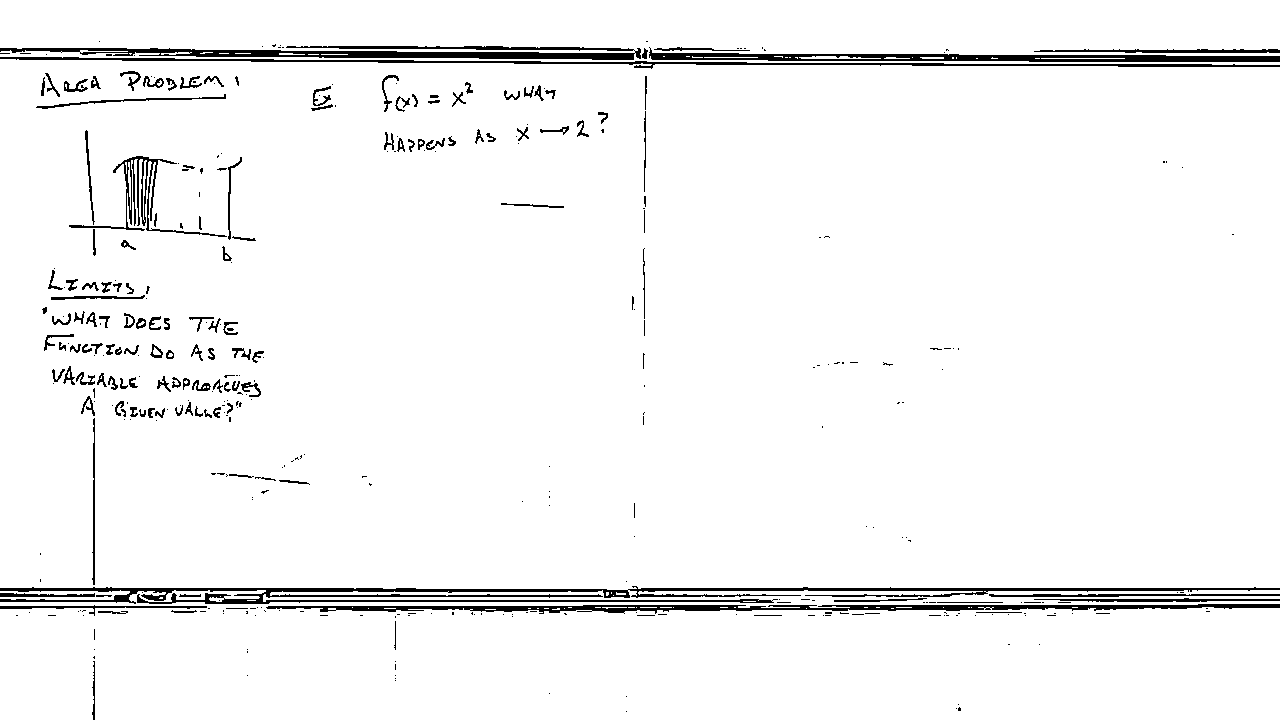 AREA PROBLEM:
a
b
LIMITS:
"WHAT DOES THE
FUNCTION DO AS THE
VARIABLE APPROACHES
A GIVEN VALUE?"
Ex f(x) = x² WHAT
HAPPENS AS x → 2?